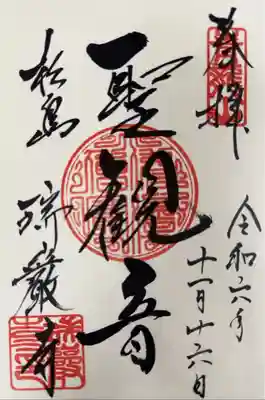 奉拝
令和六年
十一月十六日
聖観音
松島
瑞巌寺